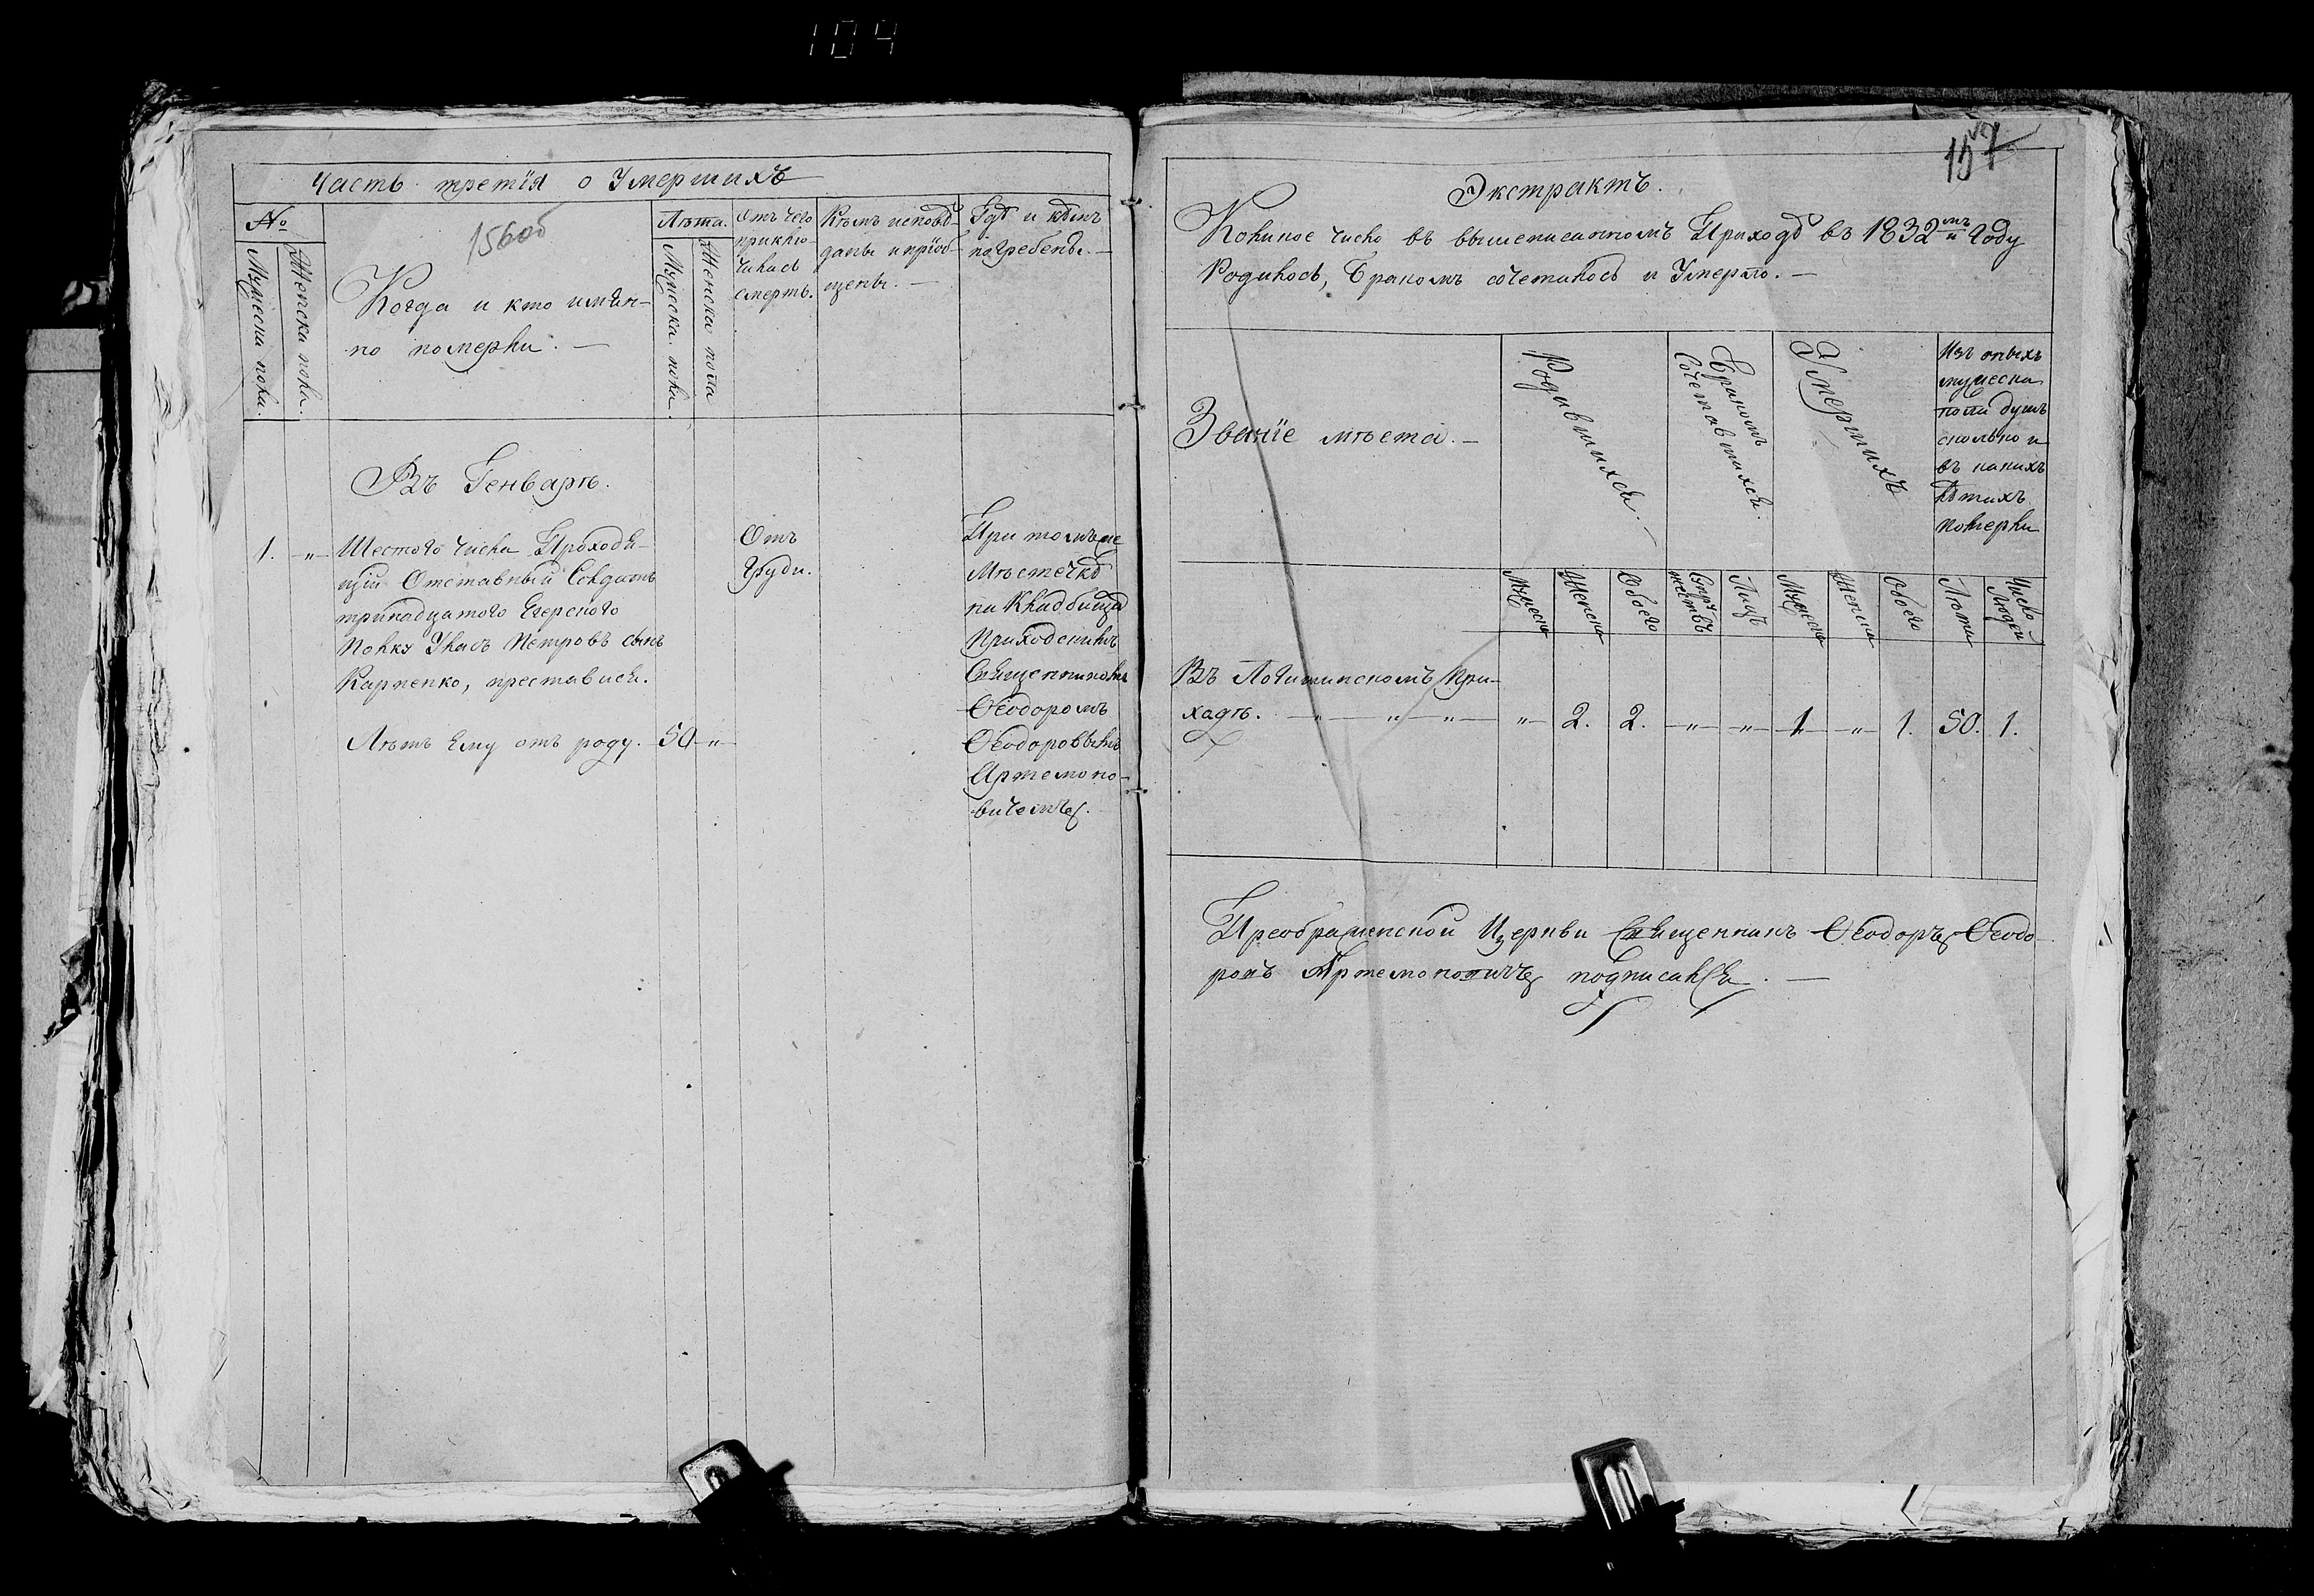 104
Часть третїя о Умершихъ
№
Мужеска пола.
Женска пола.
156об
Когда и кто имян-
но померли. —
Лѣта.
Мужеска пола.
Женска пола
Отъ чего
приклю-
чилась
смерть.
Кѣмъ исповѣ-
даны и прїоб-
щены. —
Гдѣ и кѣмъ
погребены. —
Въ Генварѣ.
1. —„— Шестого числа Проходя-
щїй Отставный Солдатъ
тринадцатого Егерского
Полку Уласъ Петровъ сынъ
Карпенко, преставися.
Лѣтъ Ему отъ роду. — 50 —„—
Отъ
Груди.
При томъ же
Мѣстечкѣ
на Кладбищѣ
Приходскимъ
Священникомъ
Ѳеодоромъ
Ѳеодоровымъ
Артемоно-
вичемъ. —
157
Экстрактъ.
Коликое число въ вышеписанномъ Приходѣ въ 1832мъ Году
Родилось, Бракомъ сочеталось и Умерло. —
Званїе мѣста. —
Родившихся. —
Бракомъ
Сочетавшихся.
Умершихъ
Изъ оныхъ
мужеска
пола душъ
сколько и
въ какихъ
лѣтахъ
померли
Мужеска
Женска
Обоего
Супру-
жествъ
Лицъ
Мужеска
Женска
Обоего
Лѣта
Число
Людей
Въ Логишинскомъ При-
ходѣ. —„— „— „— —„— 2. 2. —„— —„— 1 —„— 1. 50. 1.
Преображенской Церкви Священникъ Ѳеодоръ Ѳеодо-
ровъ Артемоновичъ подписался. —